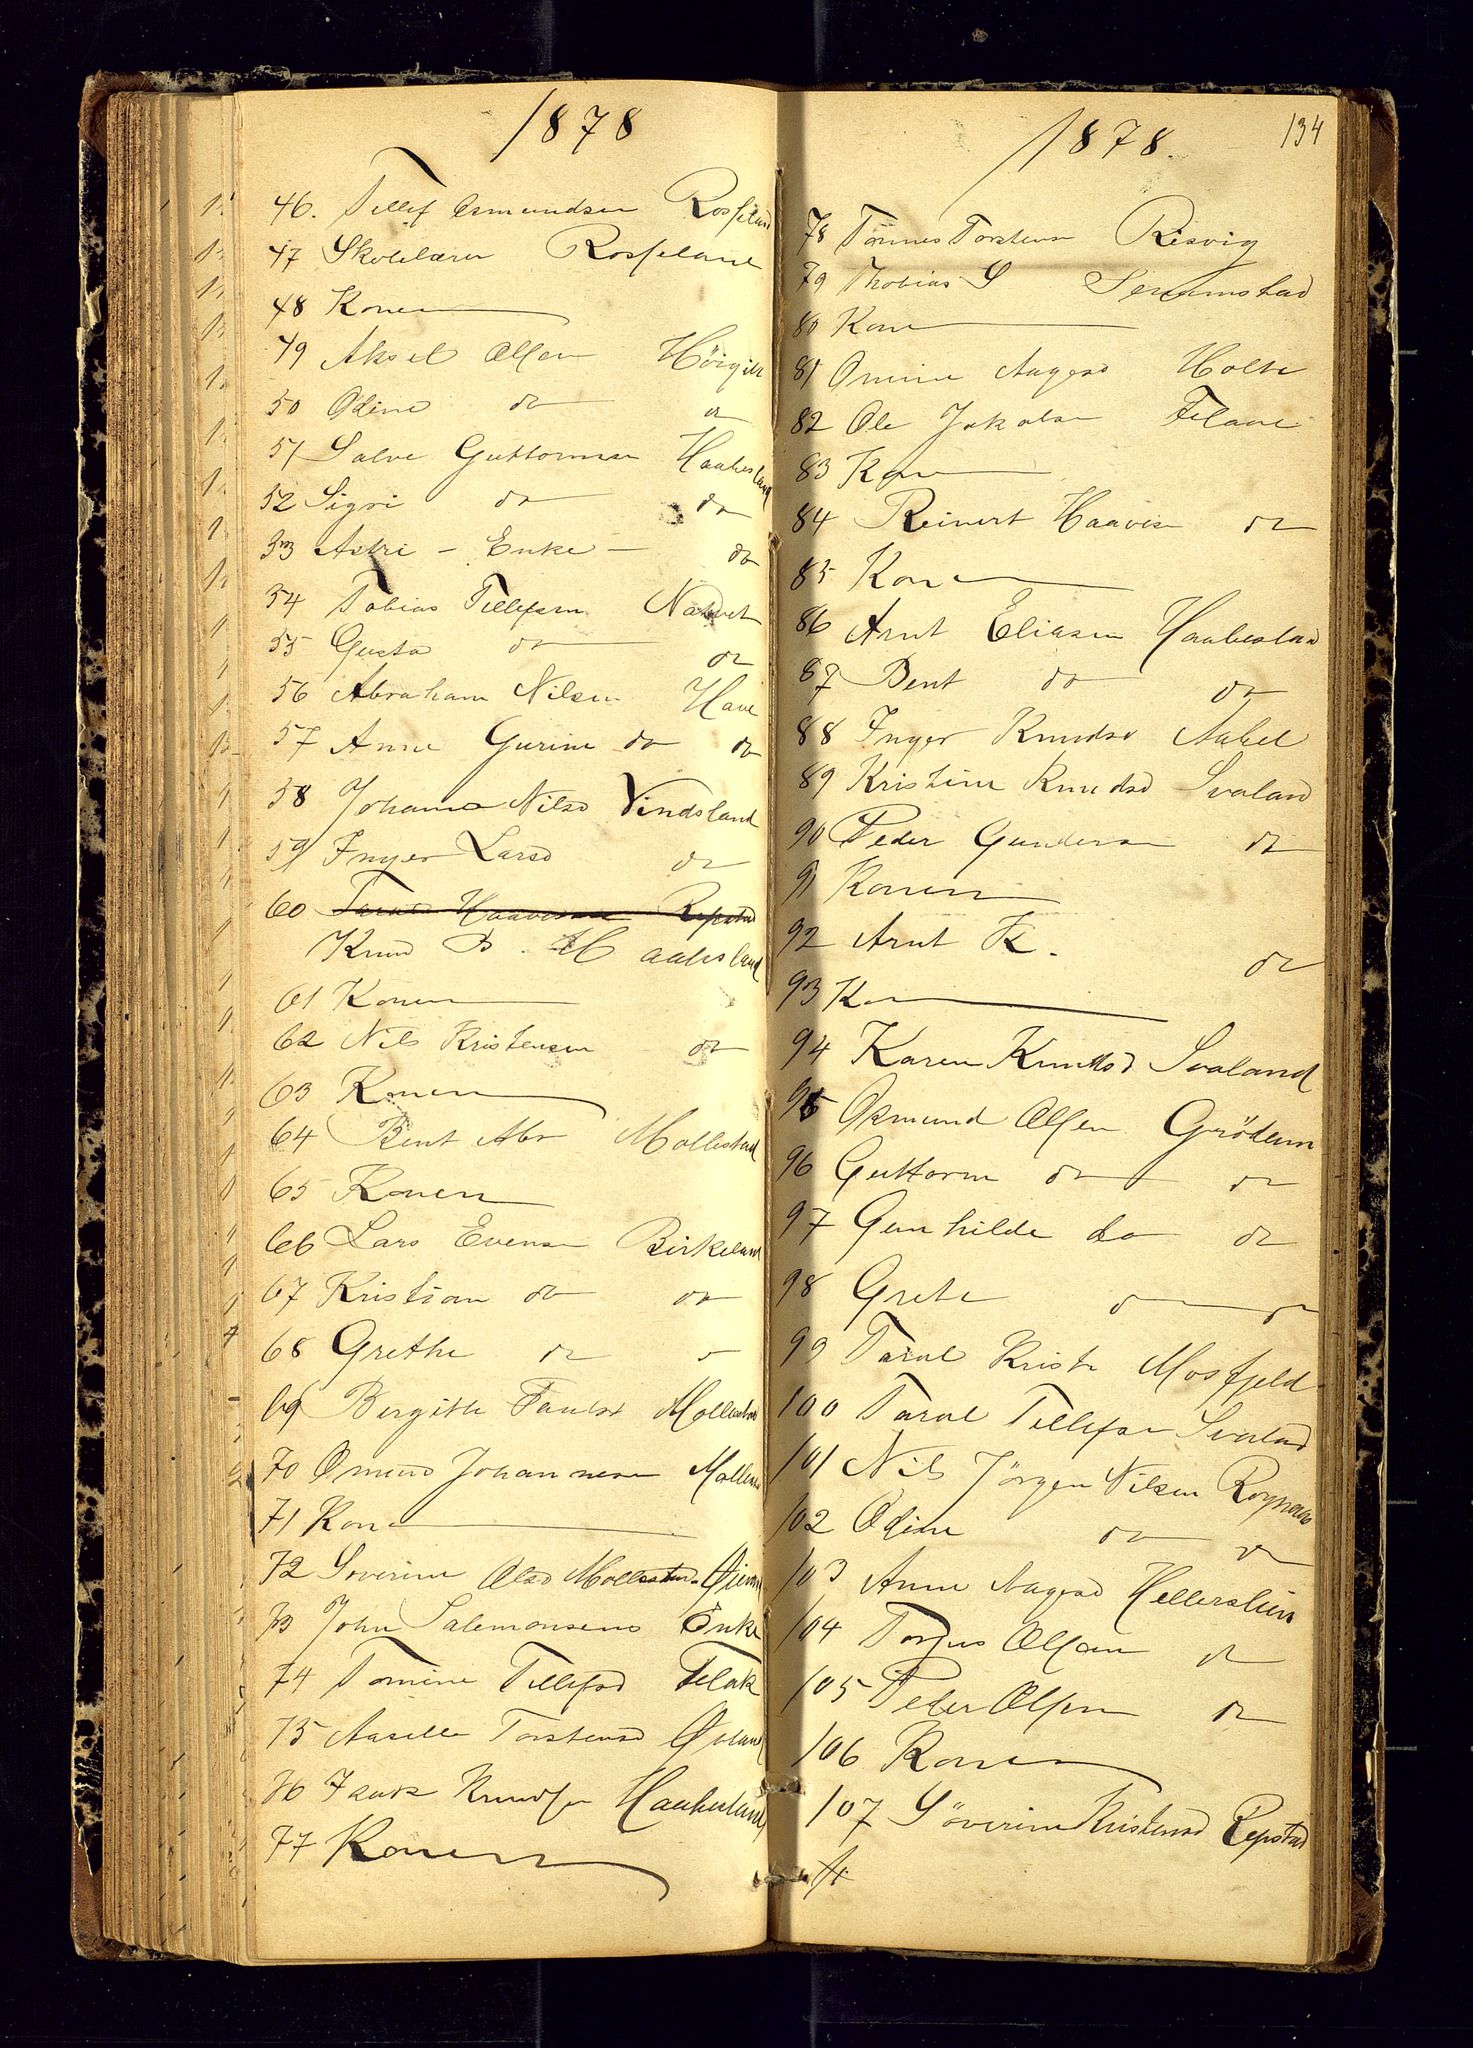 1878
46. Tellef Osmundsen Rosseland
47 Skolelærer Rosseland
48 Konen
49 Aksel Olsen
50 Odine do do
51 Salve Guttormsen Haabesland
52 Sigri do do
53 Astri - Enke - do
54 Tobias Tellefsen
55 Gusta do do
56 Abraham Nilsen Have
57 Anne Gurine do do
58 Johanne Nilsd Vindsland
59 Inger Larsd do
60 Repstad
Knud B. Haabesland
61 Konen
62 Nils Kristensen do
63 Konen
64 Bent Abr Mollestad
65 Konen
66 Lars Evensen Birkeland
67 Kristian do do
68 Grethe do
69 Bergithe Mollestad
70 Omund Johannesen Mollestad
71 Kone
72 Severine Olsd Mollestad
73 John Salemonsens Enke
74 Tomine Tellefsd Flak
75 Aaselle Torstensd
76 Knudsen Haabesland
77 Konen
1878. 134
78 Tønnes Torstensen Risvig
79 Thobias S
80 Kone
81 Aagesd Holte
82 Ole Jakobsen
83 Kone
84 Reinert Haavesen do
85 Konen
86 Arnt Eliasen Haabesland
87 Bent do do
88 Inger Knudsd Aabel
89 Kristine Knudsd Svaland
90 Peder Gundersen do
91 Konen
92 Arnt K. do
93 Kone
94 Karen Knutsd Svaland
95 Osmund Olsen Grödum
96 Guttorm do do
97 Gunhilde do do
98 Grete do do
99 Taral Kristen Mosfjeld
100 Taral Tellefsen Svaland
101 Nils Jörgen Nilsen
102 Odine do do
103 Anne Aagesd
104 Olsen do
105 Peder Olsen do
106 Konen
107 Söverine Kristensd Repstad